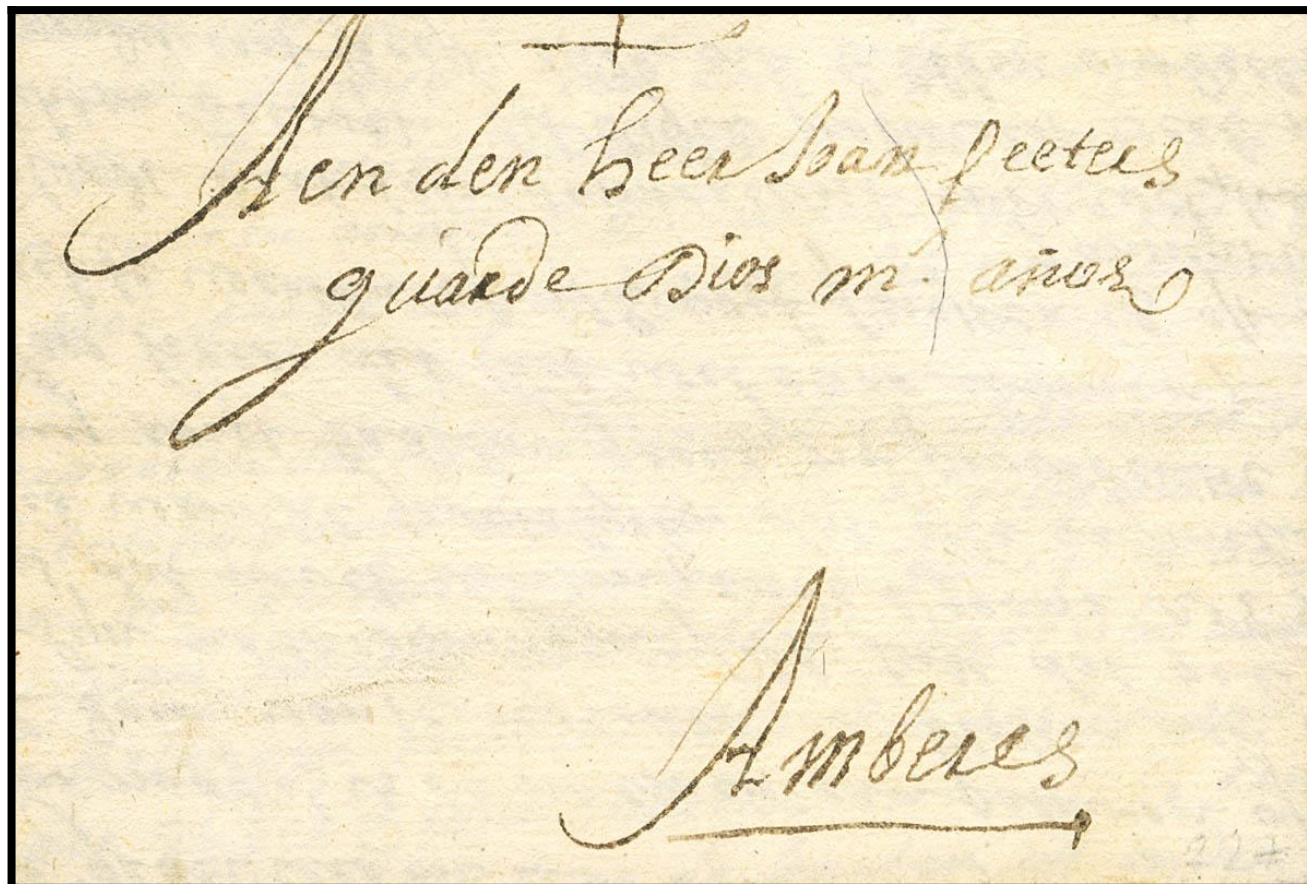 Aen den heer Joan peeters
guarde Dios m.ˢ años
Amberes
227